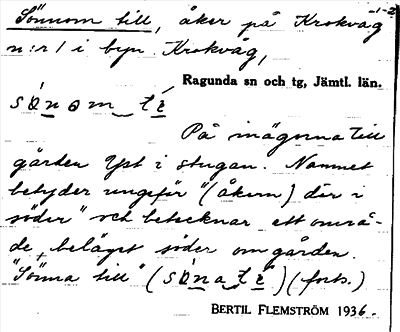 Sönnom till, åker på Krokvåg -1-2
n:r 1 i byn Krokvåg,
Ragunda sn och tg, Jämtl. län.
På inägorna till
gården Yst i stugan. Namnet
betyder ungefär "(åkern) där i
söder" och betecknar ett områ-
de, beläget söder om gården.
"Sönna till" (forts.)
BERTIL FLEMSTRÖM 1936.